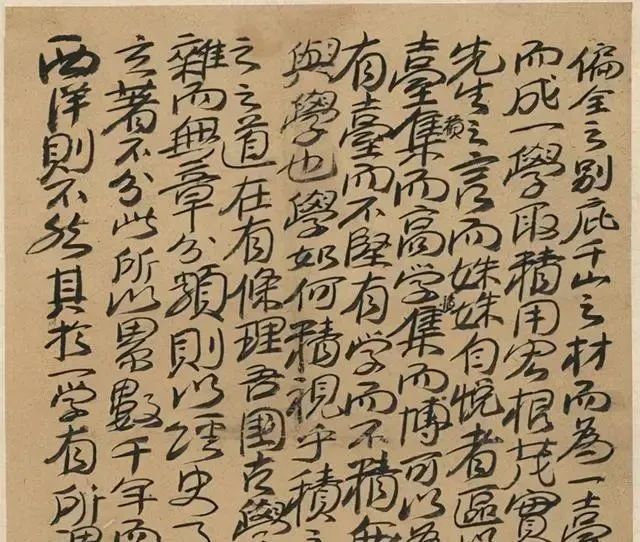 偏全之別庇千山之材而為一臺
而成一學取精用宏根茂實
先生之言而姝姝自悅者區以
臺積集而高学集而博可以為
有臺而不堅有学而不精無
與學也學如何精視乎積之
之之道在有條理吾國古學
雜而無章分類則以經史子
立著不分此所以累數千年而
西洋則不然其於一学有所謂